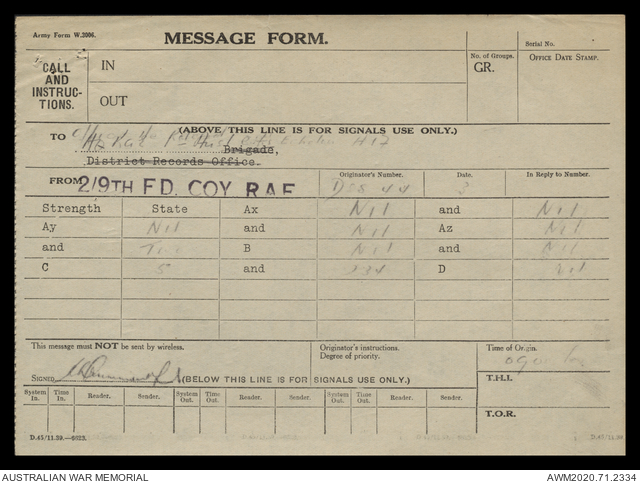 Army Form W.3006.
MESSAGE FORM.
Serial No.
CALL AND INSTRUC-TIONS.
IN
OUT
No. of Groups.
GR.
OFFICE DATE STAMP.
(ABOVE THIS LINE IS FOR SIGNALS USE ONLY.)
TO
Brigade,
District Records Office.
FROM 2/9TH FD. COY RAE
Originator's Number.
Date.
3
In Reply to Number.
Strength State Ax Nil and Nil
Ay Nil and Nil Az Nil
and B Nil and Nil
C 5 and 234 D Nil
This message must NOT be sent by wireless.
Originator's instructions.
Degree of priority.
Time of Origin.
SIGNED
(BELOW THIS LINE IS FOR SIGNALS USE ONLY.)
T.H.I.
System In. Time In. Reader. Sender. System Out. Time Out. Reader. Sender. System Out. Time Out. Reader. Sender.
T.O.R.
AUSTRALIAN WAR MEMORIAL
AWM2020.71.2334